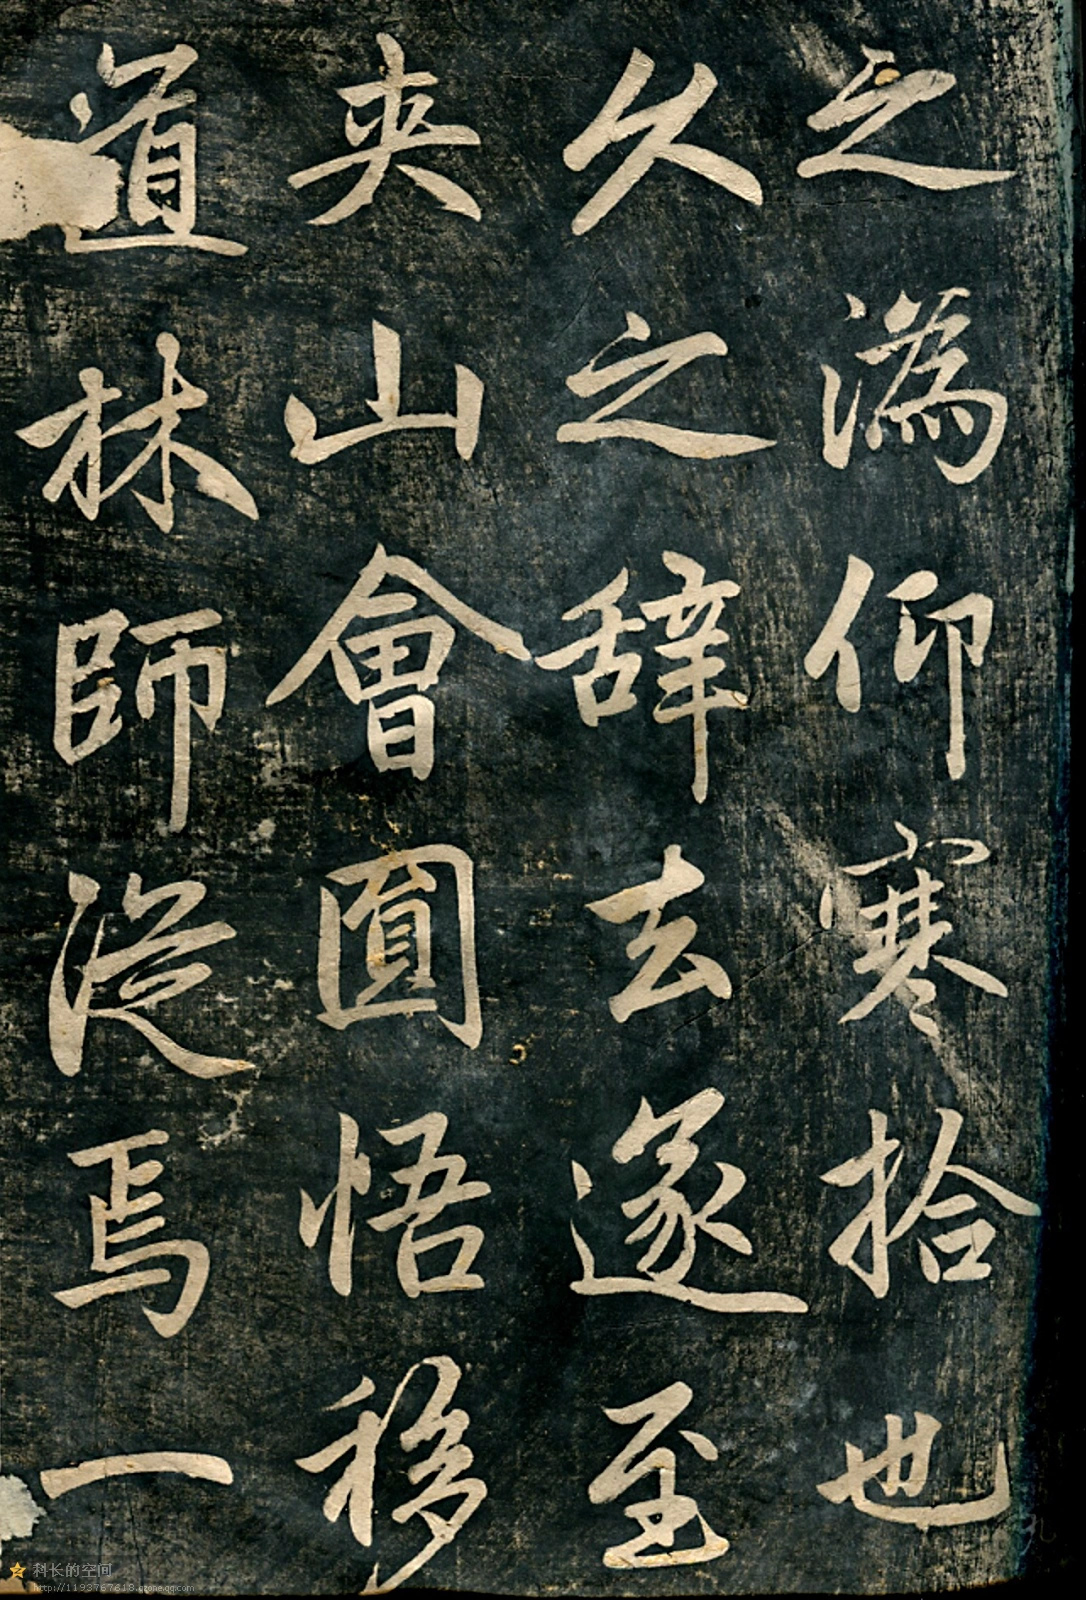 之溈仰寒拾也
久之辞去遂至
夹山會圓悟移
道林師從焉一
科长的空间
http://1193767618.qzone.qq.com